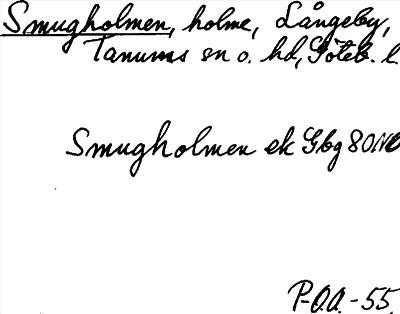 Smugholmen, holme, Långeby,
Tanums sn o. hd, Göteb. l.
Smugholmen ek Gbg 80 NO
P-O.O. -55.